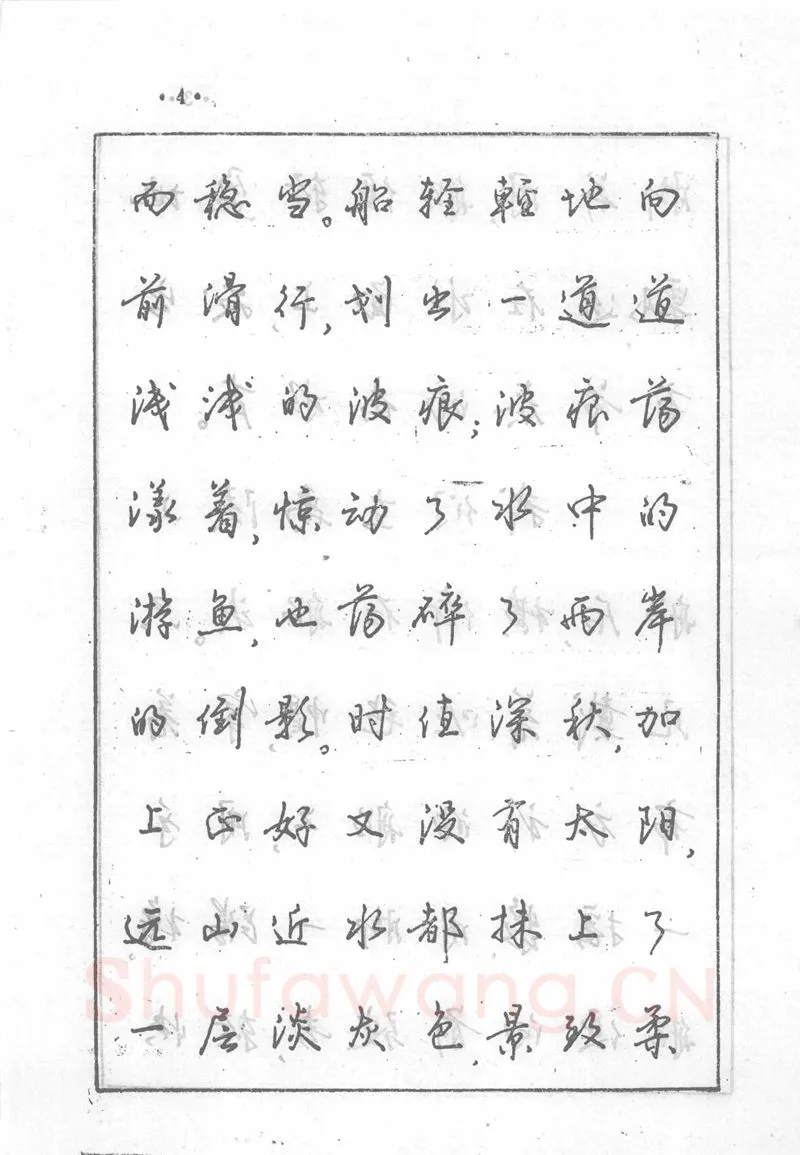 ·4·
而稳当。船轻輕地向
前滑行，划出一道道
浅浅的波痕；波痕荡
漾着，惊动了水中的
游鱼，也荡碎了两岸
的倒影。时值深秋，加
上正好又没有太阳，
远山近水都抹上了
一层淡灰色，景致柔
Shufawang.CN